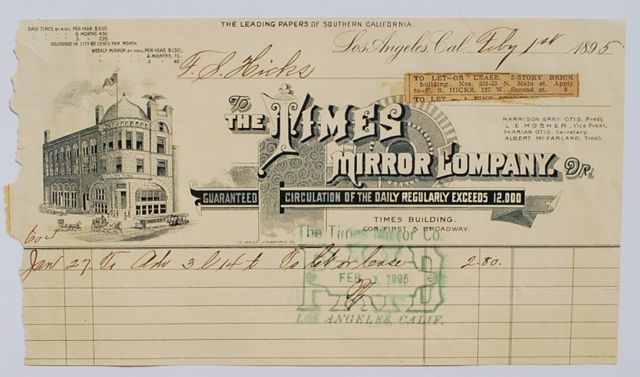 THE LEADING PAPERS OF SOUTHERN CALIFORNIA.
DAILY TIMES BY MAIL PER YEAR $9.00
6 MONTHS 4.50
3 " 2.25
DELIVERED IN CITY 85 CENTS PER MONTH.
WEEKLY MIRROR BY MAIL PER YEAR $1.30,
6 MONTHS 75.
3 " 40
Los Angeles, Cal. Feby 1st 1895
F. S. Hicks
TO LET—OR LEASE, 3-STORY BRICK
building, Nos. N. Main st. Apply
to F. S. HICKS, 127 W. Second st. 8
TO LET—A FINE
HARRISON GRAY OTIS, Prest.
L. E. MOSHER, Vice Prest.
MARIAN OTIS, Secretary.
ALBERT McFARLAND, Treas.
TO
THE TIMES
MIRROR COMPANY. Dr.
GUARANTEED CIRCULATION OF THE DAILY REGULARLY EXCEEDS 12,000
TIMES BUILDING.
COR. FIRST & BROADWAY.
The Times Mirror Co.
Jan 27 To Adv 3 l 14 t To let or lease 2.80.
FEB 1 1895
PAID
LOS ANGELES, CALIF.